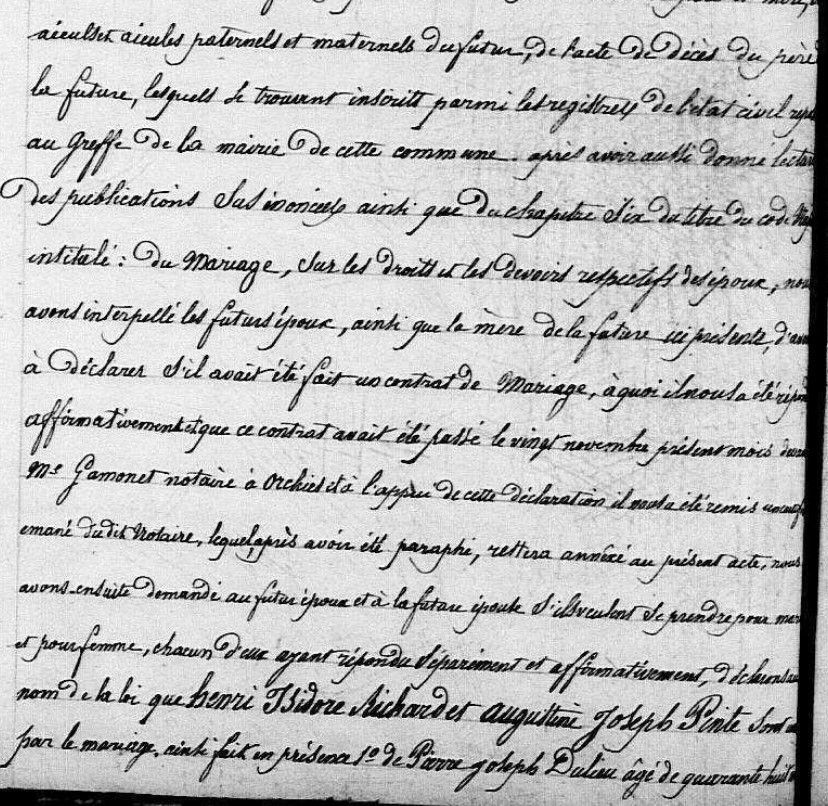 aieulset aieules paternels et maternels du futur, de l'acte de décès du père
la future, lesquels se trouvent inscrits parmi les registres de l'etat civil
au Greffe de la mairie de cette commune. après avoir aussi donné
des publications Sus énoncées ainsi que du chapitre Six du titre du code
intitulé : du Mariage, Sur les droits et les devoirs respectifs des époux,
avons interpellé les futurs époux, ainsi que la mère de la future ici présente,
à déclarer S'il avait été fait un contrat de Mariage, à quoi il nous a été
affirmativement et que ce contrat avait été passé le vingt novembre présent mois
Me Gamonet notaire à Orchies et à l'appui de cette déclaration il nous a été remis
emané du dit Notaire, lequel, après avoir été paraphé, restera annéxé au présent acte, nous
avons ensuite demandé au futur époux et à la future épouse S'ils veulent Se prendre pour
et pour femme, chacun d'eux ayant répondu Séparément et affirmativement, déclarons
nom de la loi que henri Isidore Richard et augustine Joseph Pinte Sont
par le mariage. ainsi fait en présence 1o de Pierre Joseph âgé de quarante huit